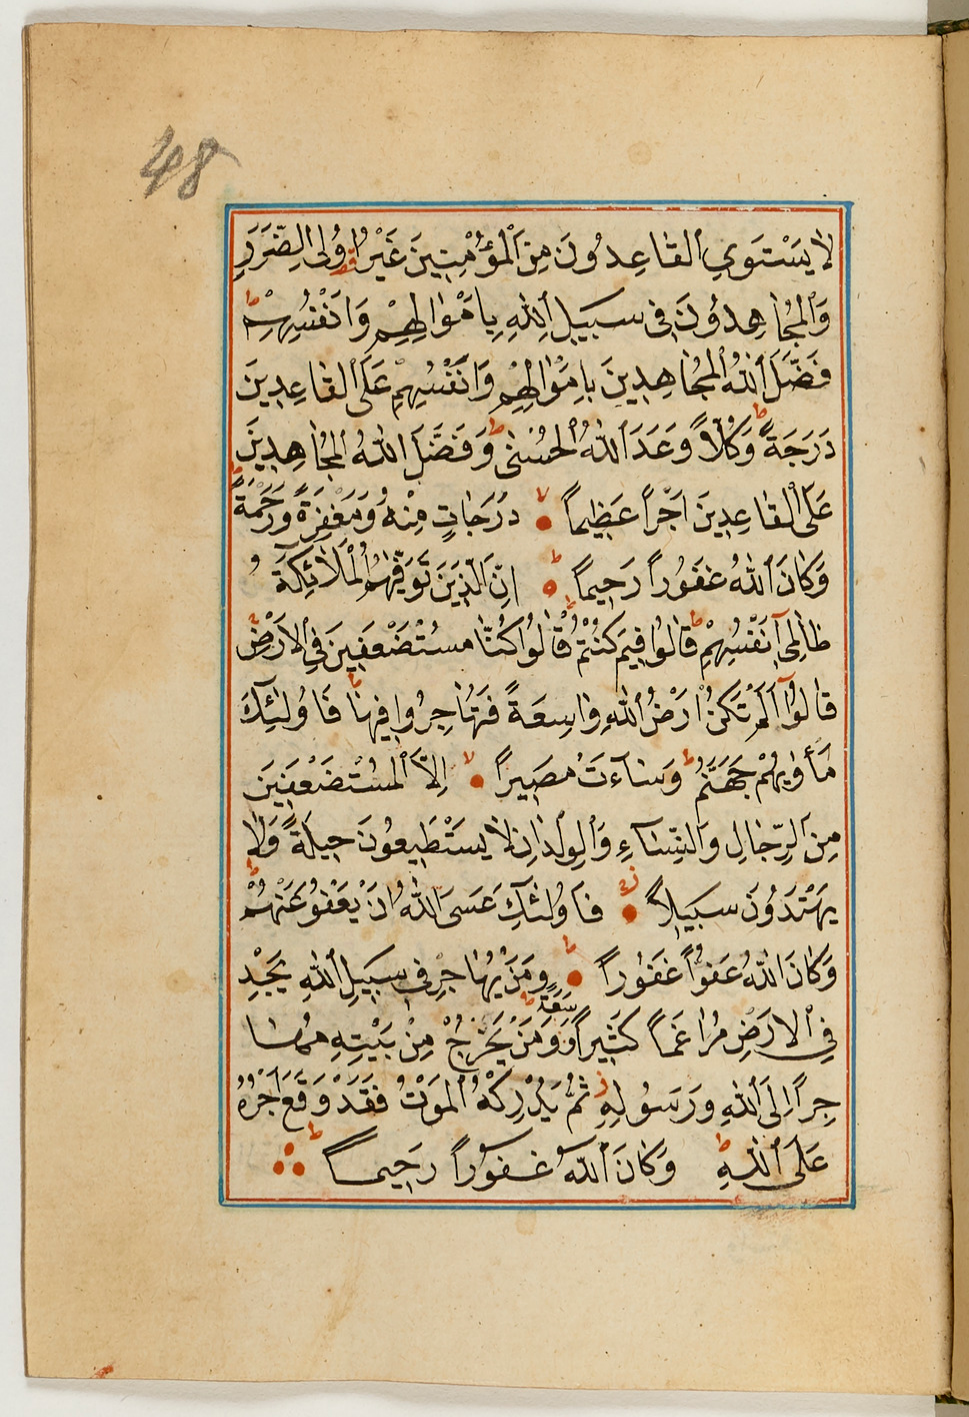 48
لا يَسْتَوِي القاعِدُونَ مِنَ الْمُؤْمِنِينَ غَيْرُ اُولِي الضَّرَرِ
وَالْمُجاهِدُونَ فِي سَبِيلِ اللّٰهِ بِاَمْوالِهِمْ وَاَنْفُسِهِمْ ط
فَضَّلَ اللّٰهُ الْمُجاهِدِينَ بِاَمْوالِهِمْ وَاَنْفُسِهِمْ عَلَى القاعِدِينَ
دَرَجَةً ط وَكُلاًّ وَعَدَ اللّٰهُ الْحُسْنٰى ط وَفَضَّلَ اللّٰهُ الْمُجاهِدِينَ
عَلَى القاعِدِينَ اَجْراً عَظِيماً لا دَرَجاتٍ مِنْهُ وَمَغْفِرَةً وَرَحْمَةً ط
وَكانَ اللّٰهُ غَفُوراً رَحِيماً ط اِنَّ الَّذِينَ تَوَفّٰيهُمُ الْمَلٰئِكَةُ
ظالِمِي اَنْفُسِهِمْ قالُوا فِيمَ كُنْتُمْ ط قالُوا كُنّا مُسْتَضْعَفِينَ فِي الاَرْضِ ط
قالُوا اَلَمْ تَكُنْ اَرْضُ اللّٰهِ واسِعَةً فَتُهاجِرُوا فِيها ط فَاُولٰئِكَ
مَأْوٰيهُمْ جَهَنَّمُ ط وَساءَتْ مَصِيراً لا اِلاَّ الْمُسْتَضْعَفِينَ
مِنَ الرِّجالِ وَالنِّساءِ وَالْوِلْدانِ لا يَسْتَطِيعُونَ حِيلَةً وَلا
يَهْتَدُونَ سَبِيلاً فَاُولٰئِكَ عَسَى اللّٰهُ اَنْ يَعْفُوَ عَنْهُمْ ط
وَكانَ اللّٰهُ عَفُوّاً غَفُوراً ط وَمَنْ يُهاجِرْ فِي سَبِيلِ اللّٰهِ يَجِدْ
فِي الاَرْضِ مُراغَماً كَثِيراً وَسَعَةً ط وَمَنْ يَخْرُجْ مِنْ بَيْتِهِ مُها
جِراً اِلَى اللّٰهِ وَرَسُولِهِ ثُمَّ يُدْرِكْهُ الْمَوْتُ فَقَدْ وَقَعَ اَجْرُهُ
عَلَى اللّٰهِ ط وَكانَ اللّٰهُ غَفُوراً رَحِيماً ط